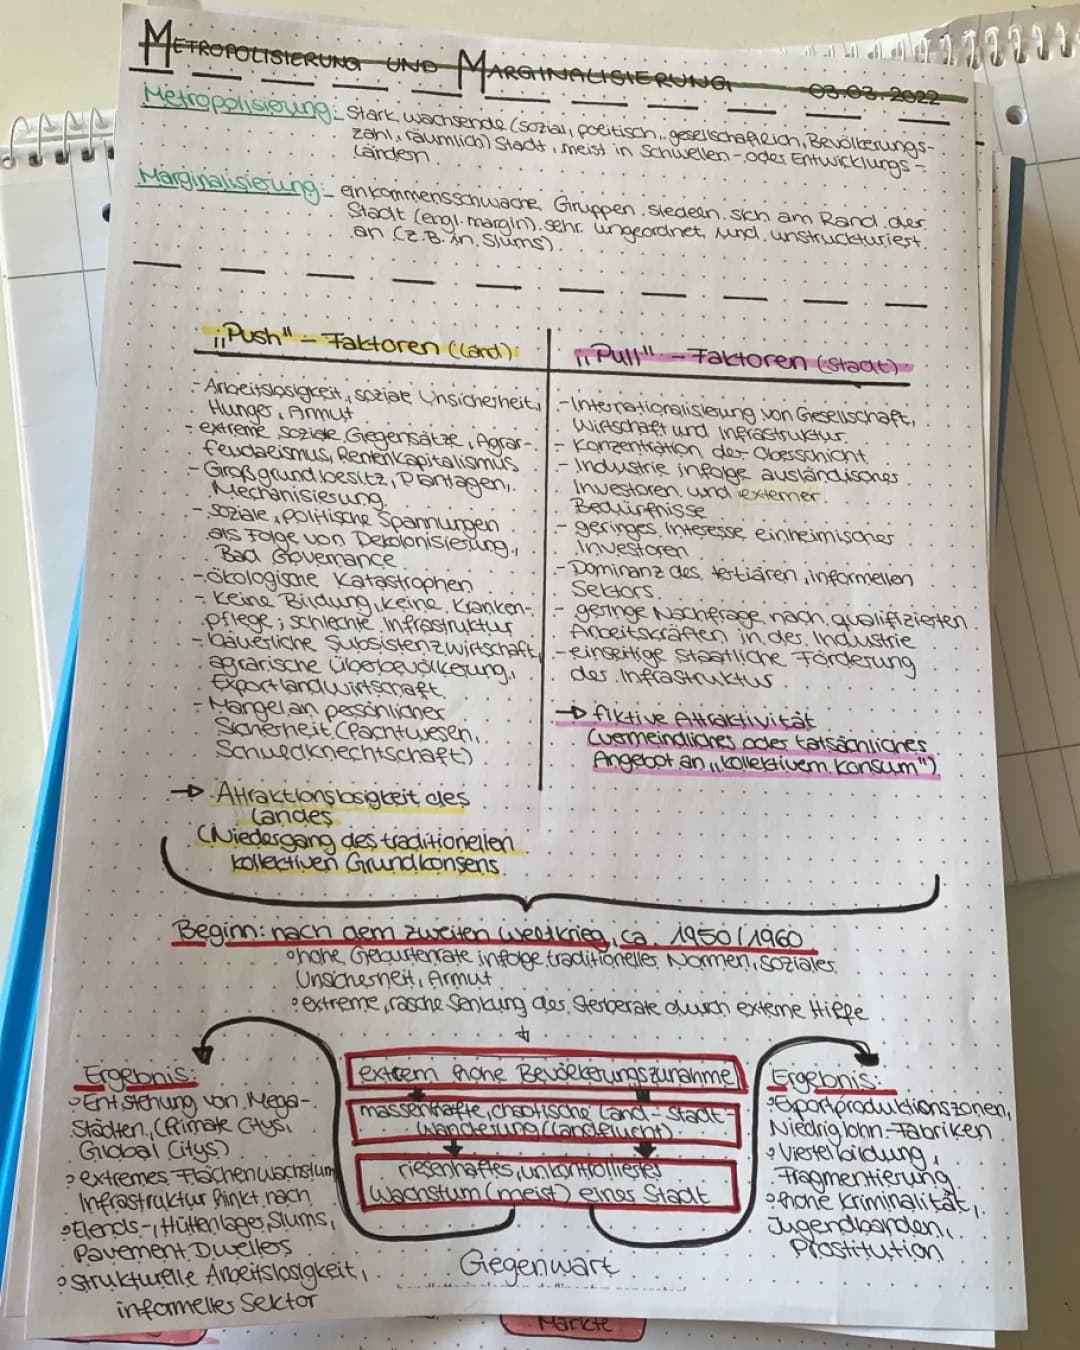 METROPOLISIERUNG UND MARGINALISIERUNG 03.03.2022
Metropolisierung: stark wachsende (sozial, politisch, gesellschaftlich, Bevölkerungs-
zahl, räumlich) Stadt, meist in Schwellen- oder Entwicklungs-
ländern
Marginalisierung: einkommensschwache Gruppen siedeln sich am Rand der
Stadt (engl. margin) sehr ungeordnet und unstruckturiert
an (z.B. in Slums)
„Push" - Faktoren (Land)
- Arbeitslosigkeit, soziale Unsicherheit,
Hunger, Armut
- extreme soziale Gegensätze, Agrar-
feudalismus, Rentenkapitalismus
- Großgrundbesitz, Plantagen,
Mechanisierung
- soziale, politische Spannungen
als Folge von Dekolonisierung,
Bad Governance
- ökologische Katastrophen
- keine Bildung, keine Kranken-
pflege; schlechte Infrastruktur
- bäuerliche Subsistenzwirtschaft,
agrarische Überbevölkerung,
Exportlandwirtschaft
- Mangel an persönlicher
Sicherheit (Pachtwesen,
Schuldknechtschaft)
→ Attraktionslosigkeit des
Landes
(Niedergang des traditionellen
kollektiven Grundkonsens
„Pull" - Faktoren (Stadt)
- Internationalisierung von Gesellschaft,
Wirtschaft und Infrastruktur
- Konzentration der Oberschicht
- Industrie infolge ausländischer
Investoren und externer
Bedürfnisse
- geringes Interesse einheimischer
Investoren
- Dominanz des tertiären, informellen
Sektors
- geringe Nachfrage nach qualifizierten
Arbeitskräften in der Industrie
- einseitige staatliche Förderung
der Infrastruktur
→ fiktive Attraktivität
(vermeindliches oder tatsächliches
Angebot an „kollektivem Konsum")
Beginn: nach dem zweiten Weltkrieg, ca. 1950/1960
° hohe Geburtenrate infolge traditioneller Normen, sozialer
Unsicherheit, Armut
° extreme, rasche Senkung der Sterberate durch externe Hilfe
↓
extrem hohe Bevölkerungszunahme
massenhafte, chaotische Land-Stadt-
Wanderung (Landflucht)
riesenhaftes, unkontrolliertes
Wachstum (meist) einer Stadt
Gegenwart
Ergebnis:
° Entstehung von Mega-
Städten, (Primate Citys,
Global Citys)
° extremes Flächenwachstum
Infrastruktur hinkt nach
° Elends-, Hüttenlager, Slums,
Pavement Dweller
° strukturelle Arbeitslosigkeit,
informeller Sektor
Ergebnis:
° Exportproduktionszonen,
Niedriglohn-Fabriken
° Viertelbildung,
Fragmentierung
° hohe Kriminalität,
Jugendbanden,
Prostitution
Märkte